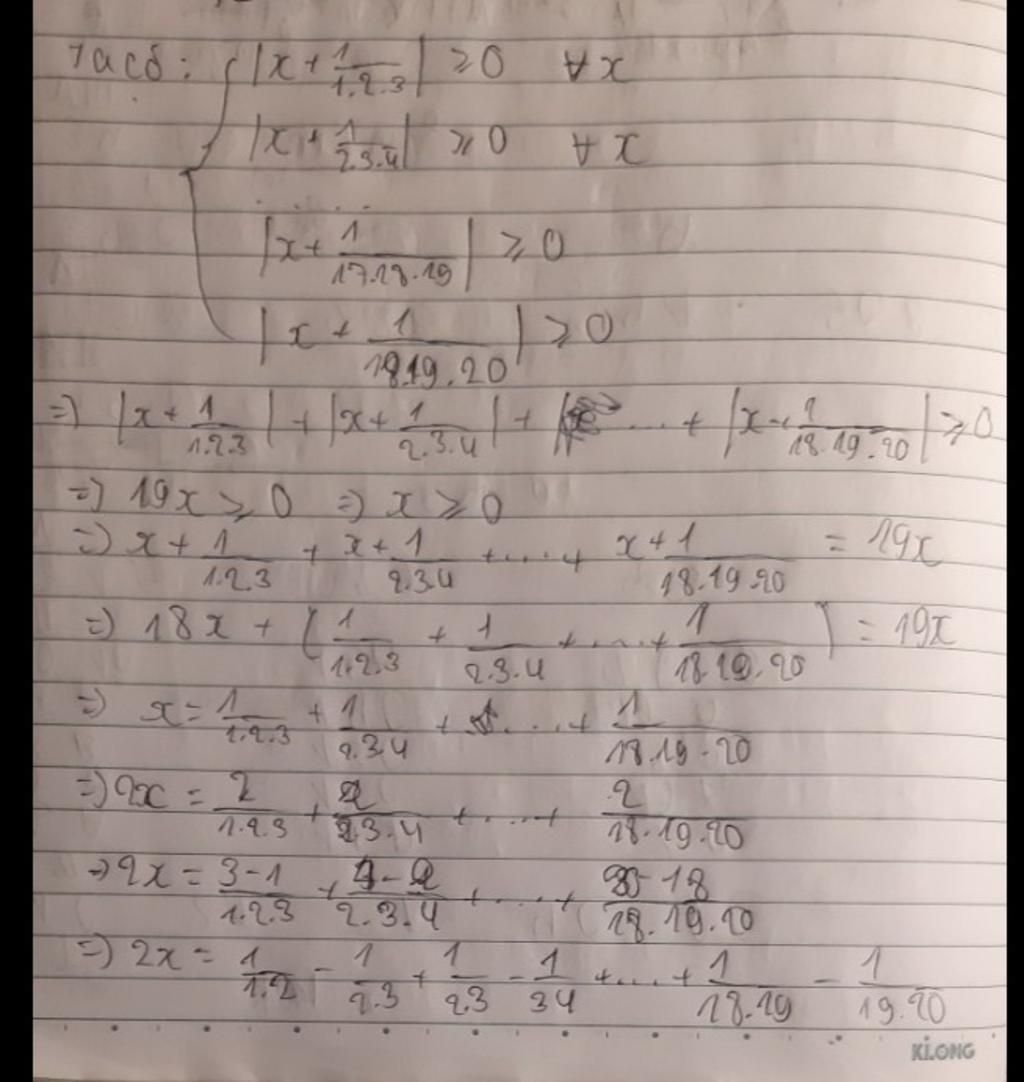 Ta có : { |x + 1/1.2.3| ≥ 0 ∀x
|x + 1/2.3.4| ≥ 0 ∀x
. . . . . .
|x + 1/17.18.19| ≥ 0
|x + 1/18.19.20| ≥ 0
=) |x + 1/1.2.3| + |x + 1/2.3.4| + ... + |x + 1/18.19.20| ≥ 0
=) 19x ≥ 0 =) x ≥ 0
=) x + 1/1.2.3 + x + 1/2.3.4 + .... + x + 1/18.19.20 = 19x
=) 18x + (1/1.2.3 + 1/2.3.4 + .... + 1/18.19.20) = 19x
=) x = 1/1.2.3 + 1/2.3.4 + .... + 1/18.19.20
=) 2x = 2/1.2.3 + 2/2.3.4 + .... + 2/18.19.20
=) 2x = 3-1/1.2.3 + 4-2/2.3.4 + .... + 20-18/18.19.20
=) 2x = 1/1.2 - 1/2.3 + 1/2.3 - 1/3.4 + .... + 1/18.19 - 1/19.20
KLONG